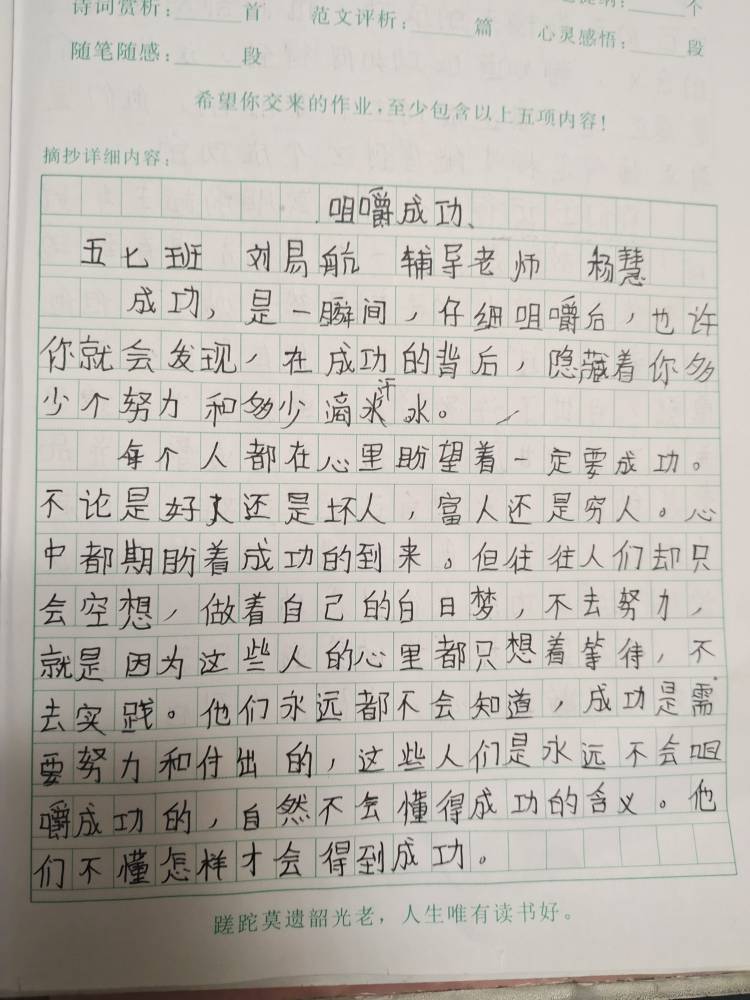 诗词赏析：______首 范文评析：______篇 ______个
随笔随感：______段 心灵感悟：______段
希望你交来的作业，至少包含以上五项内容！
摘抄详细内容：
咀嚼成功、
五七班 刘易航 辅导老师 杨慧
成功，是一瞬间，仔细咀嚼后，也许
你就会发现，在成功的背后，隐藏着你多
少个努力和多少滴汗水。
每个人都在心里盼望着一定要成功。
不论是好人还是坏人，富人还是穷人。心
中都期盼着成功的到来。但往往人们却只
会空想，做着自己的白日梦，不去努力，
就是因为这些人的心里都只想着等待，不
去实践。他们永远都不会知道，成功是需
要努力和付出的，这些人们是永远不会咀
嚼成功的，自然不会懂得成功的含义。他
们不懂怎样才会得到成功。
蹉跎莫遗韶光老，人生唯有读书好。